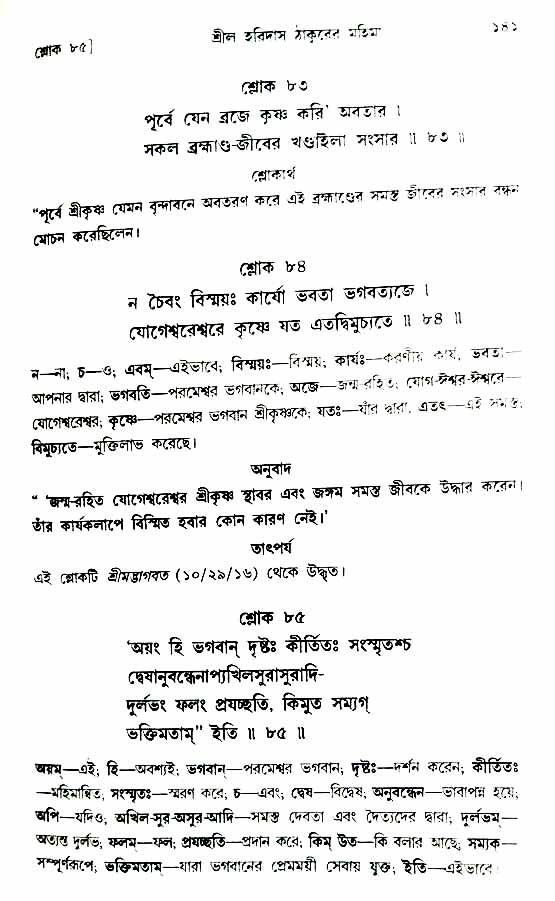 শ্লোক ৮৫]
শ্রীল হরিদাস ঠাকুরের মহিমা
১৪১
শ্লোক ৮৩
পূর্বে যেন ব্রজে কৃষ্ণ করি' অবতার ।
সকল ব্রহ্মাণ্ড-জীবের খণ্ডাইলা সংসার ॥ ৮৩ ॥
শ্লোকার্থ
“পূর্বে শ্রীকৃষ্ণ যেমন বৃন্দাবনে অবতরণ করে এই ব্রহ্মাণ্ডের সমস্ত জীবের সংসার বন্ধন
মোচন করেছিলেন।
শ্লোক ৮৪
ন চৈবং বিস্ময়ঃ কার্যো ভবতা ভগবত্যজে ।
যোগেশ্বরেশ্বরে কৃষ্ণে যত এতদ্বিমুচ্যতে ॥ ৮৪ ॥
ন—না; চ—ও; এবম্—এইভাবে; বিস্ময়ঃ—বিস্ময়; কার্যঃ—করণীয় কার্য, ভবতা—
আপনার দ্বারা; ভগবতি—পরমেশ্বর ভগবানকে; অজে—জন্ম-রহিত; যোগ-ঈশ্বর-ঈশ্বরে—
যোগেশ্বরেশ্বর; কৃষ্ণে—পরমেশ্বর ভগবান শ্রীকৃষ্ণকে; যতঃ—যাঁর দ্বারা, এতৎ—এই সমস্ত;
বিমুচ্যতে—মুক্তিলাভ করেছে।
অনুবাদ
“ ‘জন্ম-রহিত যোগেশ্বরেশ্বর শ্রীকৃষ্ণ স্থাবর এবং জঙ্গম সমস্ত জীবকে উদ্ধার করেন।
তাঁর কার্যকলাপে বিস্মিত হবার কোন কারণ নেই।’
তাৎপর্য
এই শ্লোকটি শ্রীমদ্ভাগবত (১০/২৯/১৬) থেকে উদ্ধৃত।
শ্লোক ৮৫
‘অয়ং হি ভগবান্ দৃষ্টঃ কীর্তিতঃ সংস্মৃতশ্চ
দ্বেষানুবন্ধেনাপ্যখিলসুরাসুরাদি-
দুর্লভং ফলং প্রযচ্ছতি, কিমুত সম্যগ্
ভক্তিমতাম্” ইতি ॥ ৮৫ ॥
অয়ম্—এই; হি—অবশ্যই; ভগবান্—পরমেশ্বর ভগবান; দৃষ্টঃ—দর্শন করেন; কীর্তিতঃ
—মহিমান্বিত; সংস্মৃতঃ—স্মরণ করে; চ—এবং; দ্বেষ—বিদ্বেষ; অনুবন্ধেন—ভাবাপন্ন হয়ে;
অপি—যদিও; অখিল-সুর-অসুর-আদি—সমস্ত দেবতা এবং দৈত্যদের দ্বারা; দুর্লভম্—
অত্যন্ত দুর্লভ; ফলম্—ফল; প্রযচ্ছতি—প্রদান করে; কিম্ উত—কি বলার আছে; সম্যক—
সম্পূর্ণরূপে; ভক্তিমতাম্—যারা ভগবানের প্রেমময়ী সেবায় যুক্ত; ইতি—এইভাবে।